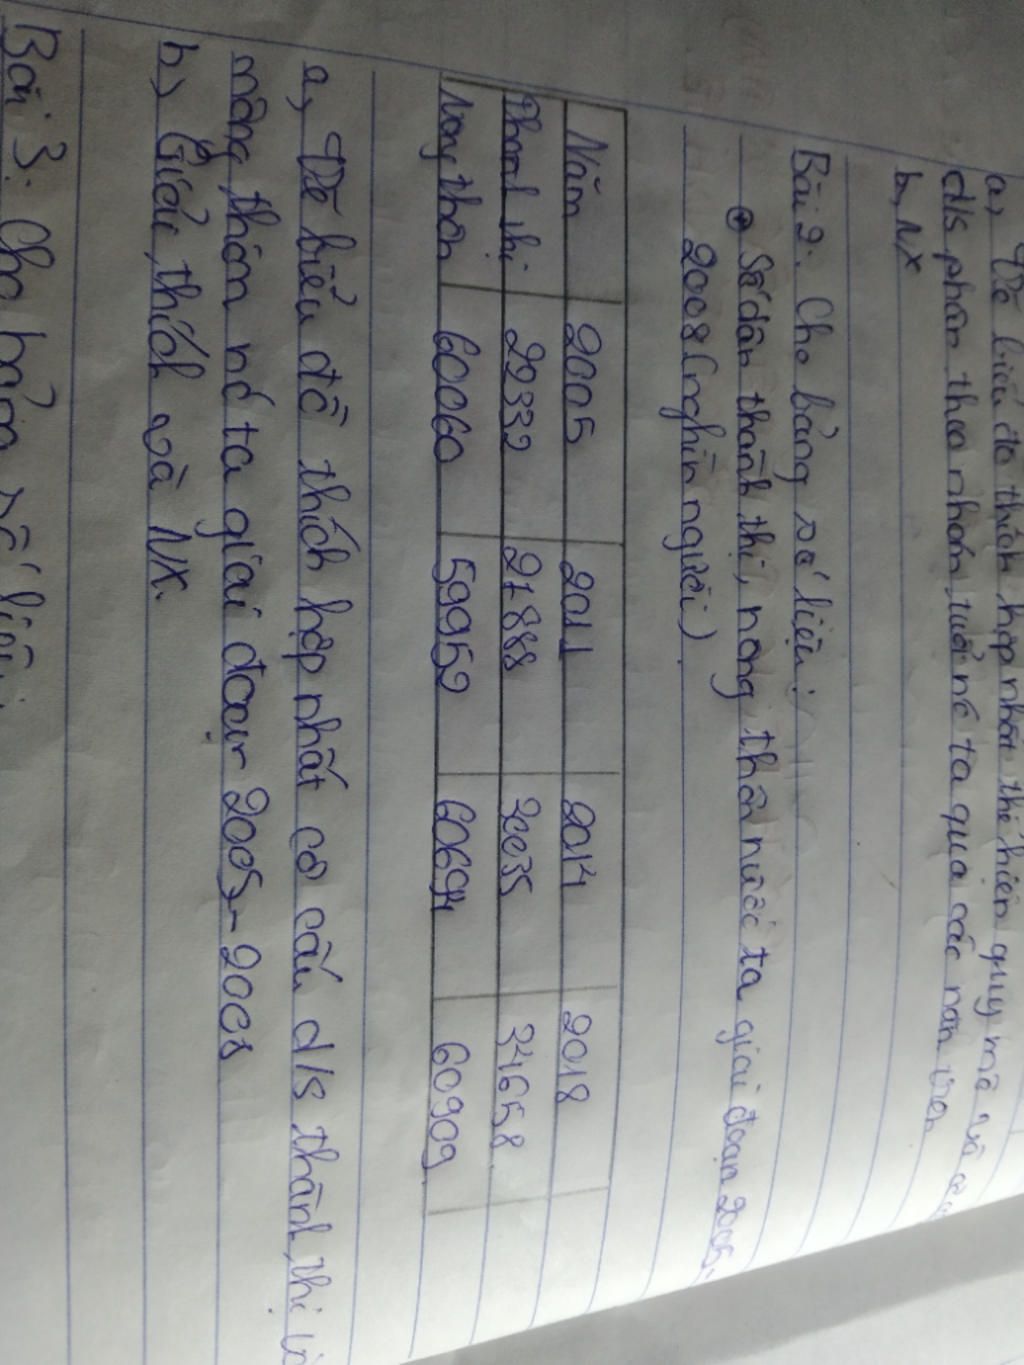 a, Vẽ biểu đồ thích hợp nhất thể hiện quy mô và cơ
d/s phân theo nhóm tuổi nc ta qua các năm trên
b, NX
Bài 2: Cho bảng số liệu:
Số dân thành thị, nông thôn nước ta giai đoạn 2005-
2008 (nghìn người)
Năm 2005 2011 2014 2018
Thành thị 22332 27888 30035 34658
Nông thôn 60060 59952 60694 60909
a, Vẽ biểu đồ thích hợp nhất cơ cấu d/s thành thị và
nông thôn nc ta giai đoạn 2005-2008
b, Giải thích và NX.
Bài 3: Cho bảng số liệu: